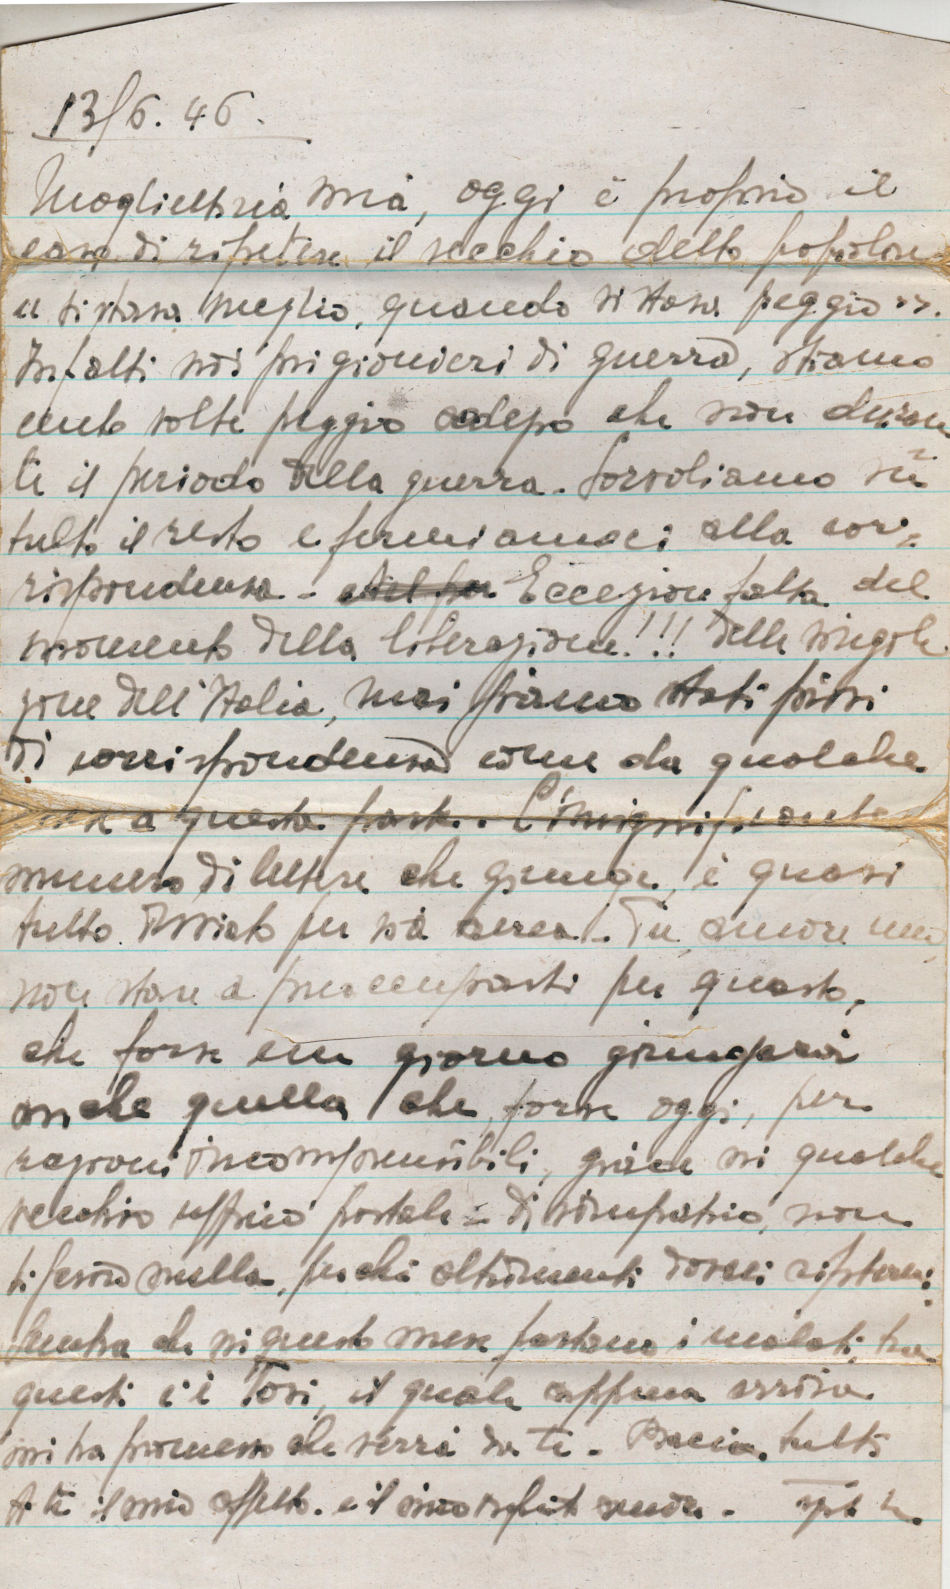 13/6.46.
Mogliettina mia, oggi è proprio il
caso di ripetere il vecchio detto popolare
"si stava meglio, quando si stava peggio".
Infatti noi prigionieri di guerra, stiamo
cento volte peggio adesso che non duran
te il periodo della guerra. Sorvoliamo su
tutto il resto e fermiamoci alla cor=
rispondenza - Eccezion fatta del
momento della liberazione!!! delle singole
zone dell'Italia, mai siamo stati privi
di corrispondenza come da qualche
mese a questa parte. L'insignificante
numero di lettere che giunge, è quasi
tutto inviato per via aerea. Tu, amore mio,
non stare a preoccuparti per questo,
che forse un giorno giungerà
anche quella che, forse oggi, per
ragioni incomprensibili, giace in qualche
vecchio ufficio postale - di rimpatrio, non
ti scrivo nulla, perché altrimenti dovrei ripetermi.
Sembra che in questo mese partano i malati, tra
questi c'è Tosi, il quale appena arriva
mi ha promesso che verrà da te. Bacia tutti
A te il mio affetto e il mio infinito amore. tuo